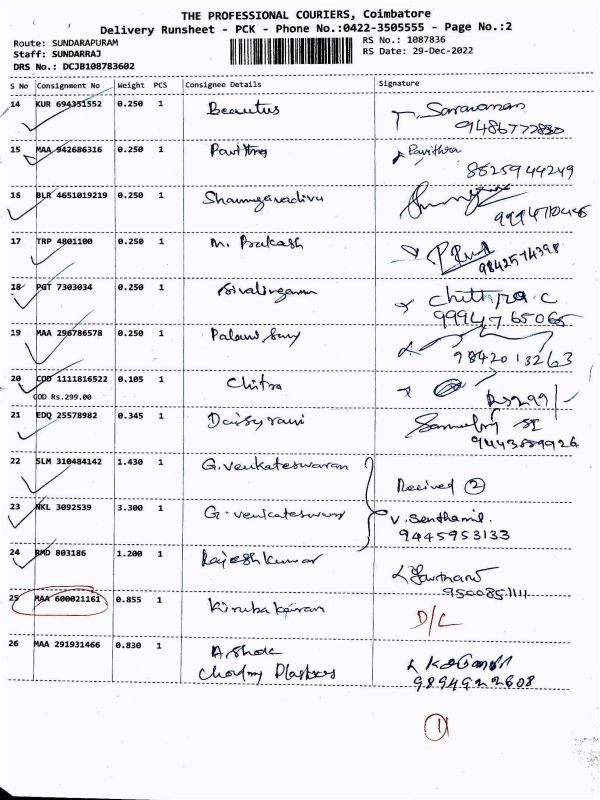 THE PROFESSIONAL COURIERS, Coimbatore
Delivery Runsheet - PCK - Phone No.:0422-3505555 - Page No.:2
Route: SUNDARAPURAM
RS No.: 1087836
Staff: SUNDARRAJ
RS Date: 29-Dec-2022
DRS No.: DCJB108783602
S No Consignment No Weight PCS Consignee Details Signature
14 KUR 694351552 0.250 1 Beautus T. Saravanan
9486772830
15 MAA 942686316 0.250 1 Pavithra Pavithra
8825944249
16 BLR 4651019219 0.250 1 Shanmugavadivu
17 TRP 4801100 0.250 1 M. Prakash
9842574398
18 PGT 7303034 0.250 1 Sivalingam Chithra.C
9994765065
19 MAA 296786578 0.250 1 Palani Samy
9842013263
20 COD 1111816522 0.105 1 Chitra
COD Rs.299.00 Rs299/-
21 EDQ 25578982 0.345 1 Daisyrani
9443889926
22 SLM 310484142 1.430 1 G.Venkateswaran
Received 2
23 NKL 3092539 3.300 1 G.Venkateswaran V. Senthamil.
9445953133
24 RMD 803186 1.200 1 Rajeshkumar
9500851111
25 MAA 600021161 0.855 1 Kirubakaran D/C
26 MAA 291931466 0.830 1 Ashok
9894922608
1